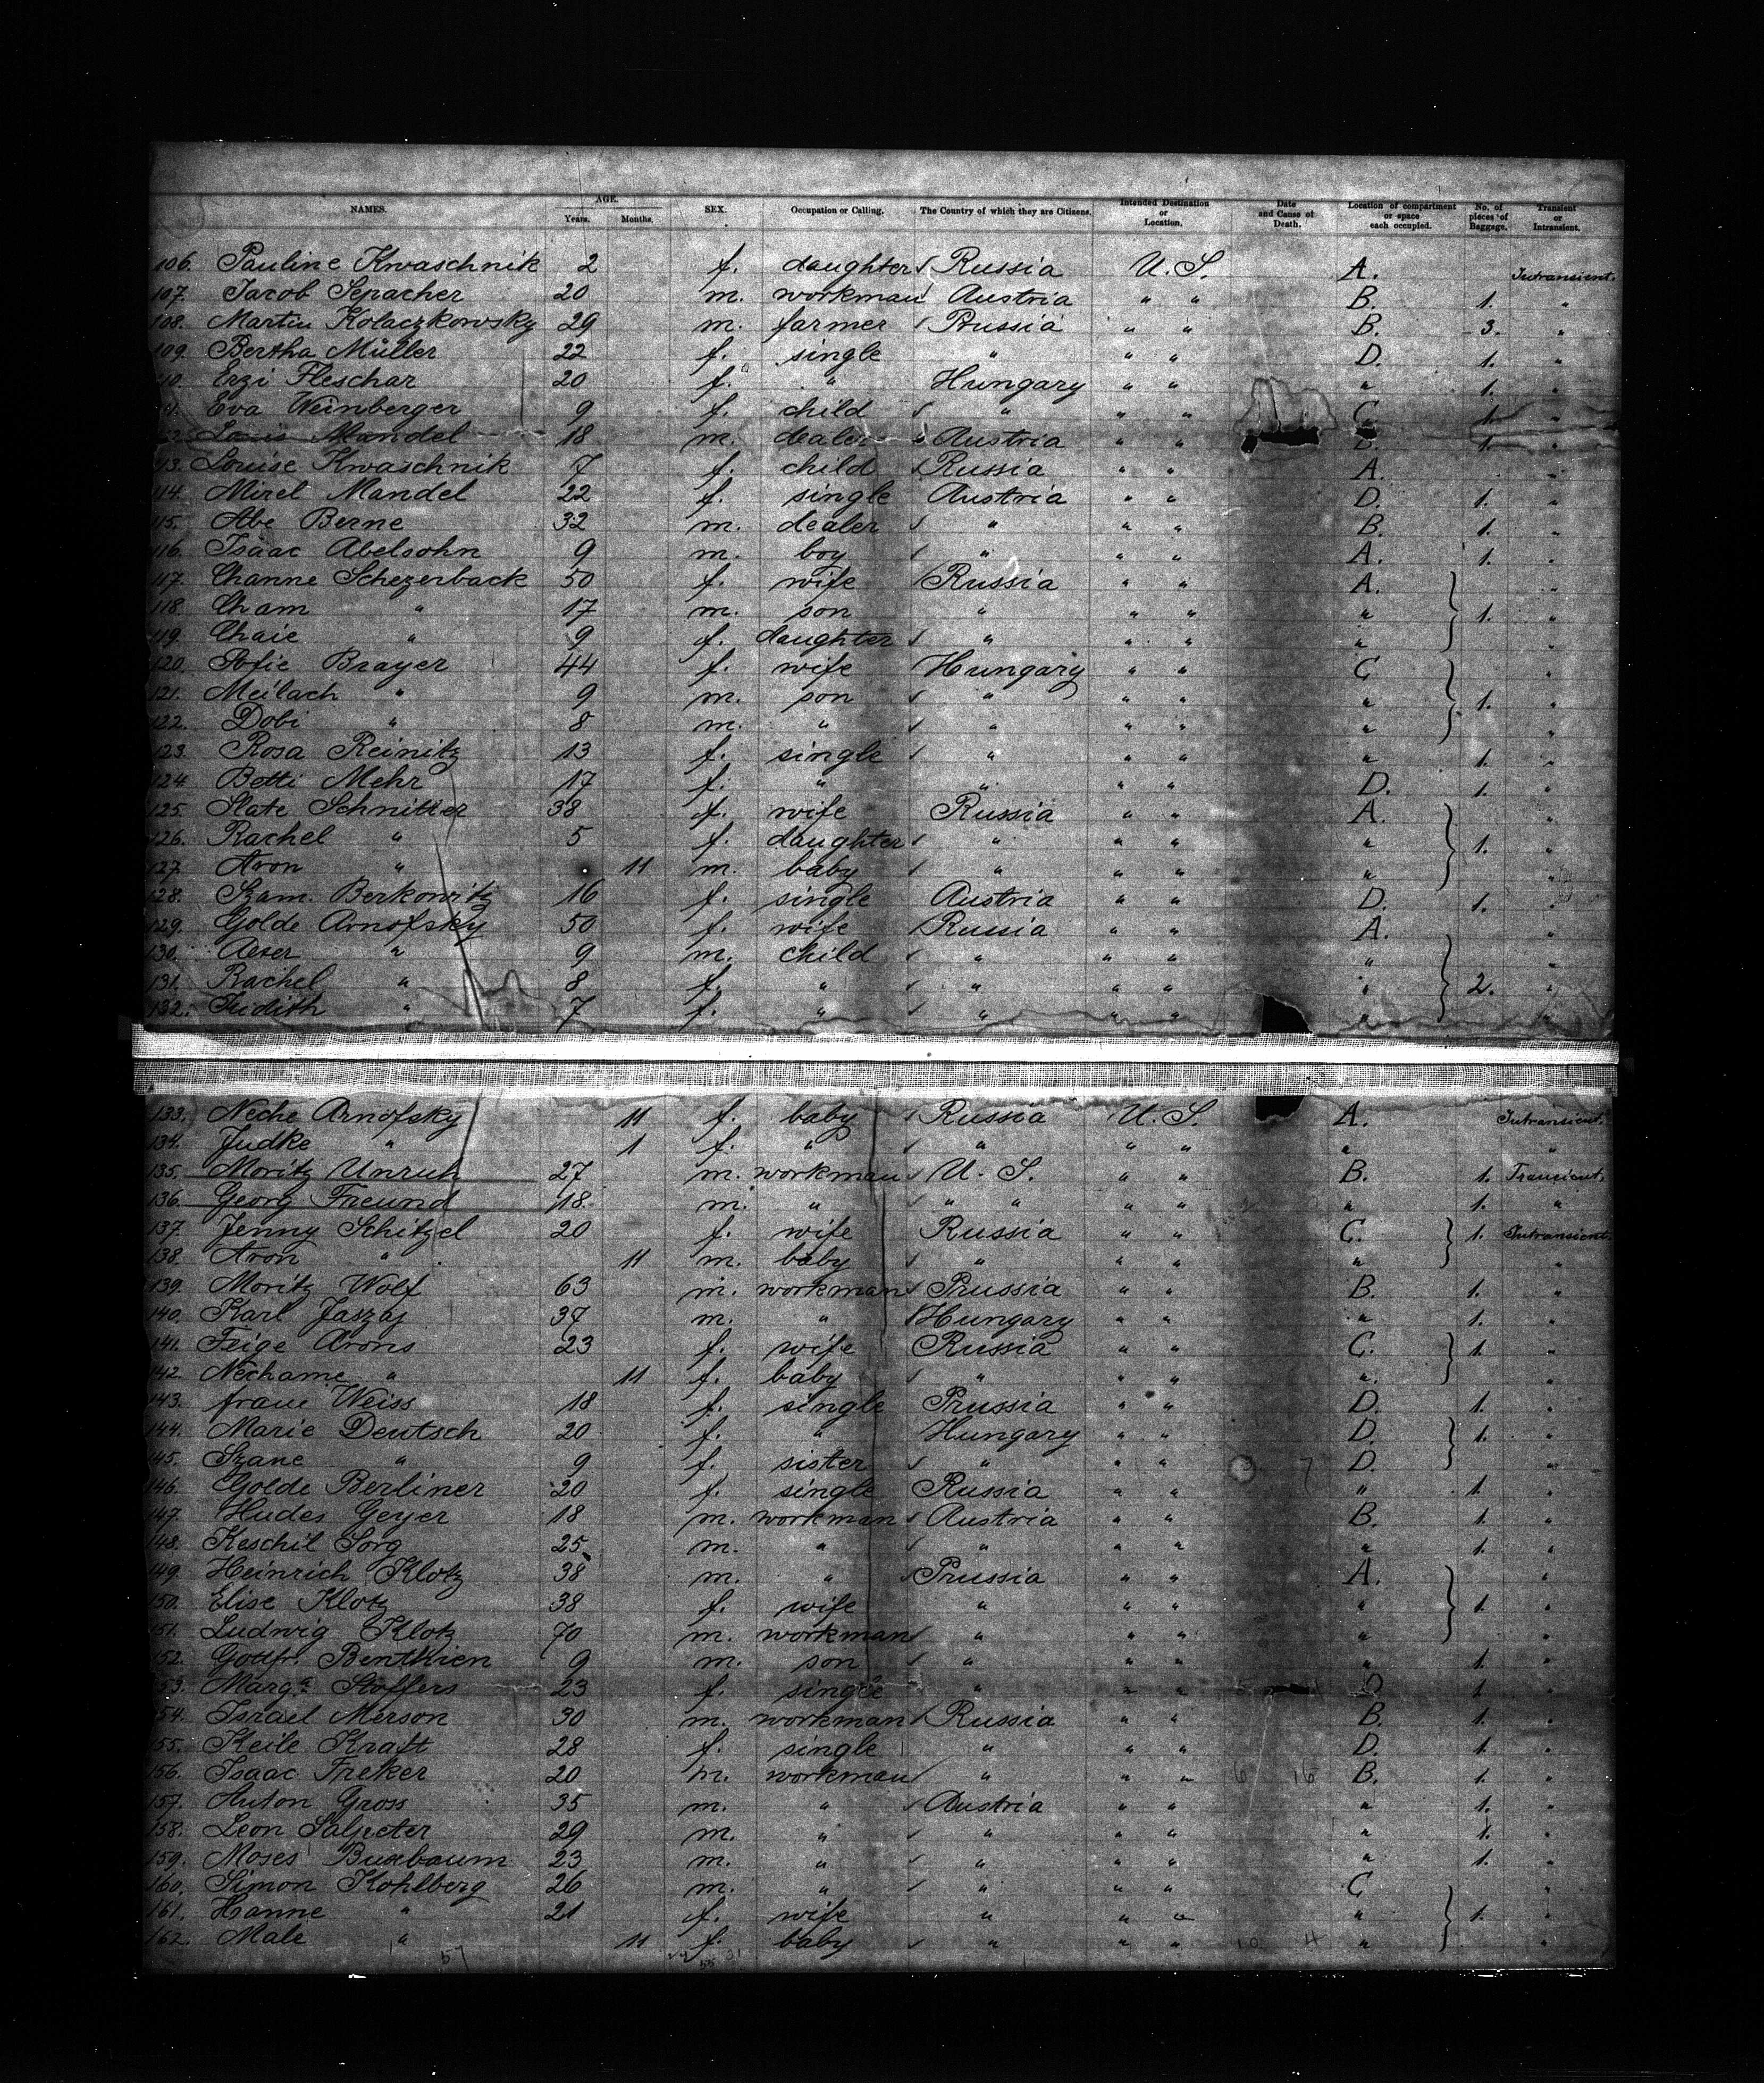 NAMES. AGE. Years. Months. SEX. Occupation or Calling. The Country of which they are Citizens. Intended Destination or Location. Date and Cause of Death. Location of compartment or space each occupied. No. of pieces of Baggage. Transient or Intransient.
106. Pauline Kwaschnik 2 f. daughter Russia U.S. A. Intransient.
107. Jacob Sepacher 20 m. workman Austria " " B. 1. "
108. Martin Kolaczkowsky 29 m. farmer Prussia " " B. 3. "
109. Bertha Müller 22 f. single " " " D. 1. "
110. Erzi Fleschar 20 f. " Hungary " " " 1. "
111. Eva Weinberger 9 f. child " " " C 1. "
112. Louis Mandel 18 m. dealer Austria " " B. 1. "
113. Louise Kwaschnik 7 f. child Russia " " A. "
114. Mirel Mandel 22 f. single Austria " " D. 1. "
115. Abe Berne 32 m. dealer " " " B. 1. "
116. Isaac Abelsohn 9 m. boy " " " A. 1. "
117. Channe Schezerback 50 f. wife Russia " " A. "
118. Cham " 17 m. son " " " " 1. "
119. Chaie " 9 f. daughter " " " " "
120. Sofie Brayer 44 f. wife Hungary " " C "
121. Meilach " 9 m. son " " " " 1. "
122. Dobi " 8 m. " " " " " "
123. Rosa Reinitz 13 f. single " " " " 1. "
124 Betti Mehr 17 f. " " " " D. 1. "
125. Slate Schnitter 38 f. wife Russia " " A. "
126. Rachel " 5 f. daughter " " " " 1. "
127. Aron " 11 m. baby " " " " "
128. Szam. Berkowitz 16 f. single Austria " " D. 1. "
129. Golde Arnofsky 50 f. wife Russia " " A. "
130. Aeser " 9 m. child " " " " "
131. Rachel " 8 f. " " " " " 2. "
132. Judith " 7 f. " " " " " "
133. Neche Arnofsky 11 f. baby Russia U.S. A. Intransient.
134. Judke " 1 f. " " " " " "
135. Moritz Unruh 27 m. workman U.S. " " B. 1. Transient.
136. Georg Freund 18. m. " " " " " " 1. "
137. Jenny Schitzel 20 f. wife Russia " " C. 1. Intransient.
138. Aron " 11 m. baby " " " " "
139. Moritz Wolf 63 m. workman Prussia " " B. 1. "
140. Karl Jaszaj 37 m. " Hungary " " " 1. "
141. Feige Arons 23 f. wife Russia " " C. 1. "
142. Nechame " 11 f. baby " " " " "
143. frane Weiss 18 f. single Prussia " " D. 1. "
144. Marie Deutsch 20 f. " Hungary " " D. 1. "
145. Szane " 9 f. sister " " " D. "
146. Golde Berliner 20 f. single Russia " " " 1. "
147. Hudes Geyer 18 m. workman Austria " " B. 1. "
148. Keschil Sorg 25 m. " " " " " 1. "
149. Heinrich Klotz 38 m. " Prussia " " A. "
150. Elise Klotz 38 f. wife " " " " 1. "
151. Ludwig Klotz 70 m. workman " " " " "
152. Gottfr. Benthien 9 m. son " " " " 1. "
153. Marg.a Stoffers 23 f. single " " " D. 1. "
154. Israel Merson 30 m. workman Russia " " B. 1. "
155. Keile Kraft 28 f. single " " " D. 1. "
156. Isaac Treker 20 m. workman " " " B. 1. "
157. Anton Gross 35 m. " Austria " " " 1. "
158. Leon Salpeter 29 m. " " " " " 1. "
159. Moses Buxbaum 23 m. " " " " " 1. "
160. Simon Kohlberg 26 m. " " " " C "
161. Hanne " 21 f. wife " " " " 1. "
162. Male " 11 f. baby " " " " "
57